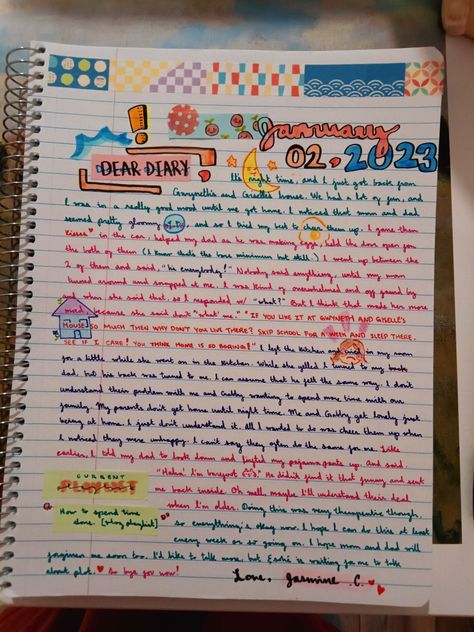 January
02, 2023
DEAR DIARY
It's night time, and I just got back from
Gwyneth's and Giselle's house. We had a lot of fun, and
I was in a really good mood until we got home. I noticed that mom and dad
seemed pretty gloomy and so I tried my best to cheer them up. I gave them
kisses in the car, helped my dad as he was making eggs, held the door open for
the both of them (I know that's the bare minimum but still.) I went up between the
2 of them and said, "hi everybody!" Nobody said anything, until my mom
turned around and snapped at me. I was kind of overwhelmed and off guard by
when she said that, so I responded w/ "what?" But I think that made her more
mad because she said don't "what" me. "IF YOU LIKE IT AT GWYNETH AND GISELLE'S
HOUSE SO MUCH THEN WHY DON'T YOU LIVE THERE? SKIP SCHOOL FOR A WEEK AND SLEEP THERE.
SEE IF I CARE! YOU THINK HOME IS SO BORING!" I left the kitchen and my mom
for a little while she went on in the kitchen. While she yelled I turned to my
dad, but his back was turned to me. I can assume that he felt the same way. I don't
understand their problem with me and Gabby wanting to spend more time with our
family. My parents don't get home until night time. Me and Gabby get lonely just
being at home. I just don't understand it. All I wanted to do was cheer them up when
I noticed they were unhappy. I can't say they often do the same for me. Like
earlier, I told my dad to look down and lifted my pajama pants up. And said,
"Haha! I'm barefoot" He didn't find it that funny and sent
me back inside. Oh well, maybe I'll understand their deal
when I'm older. Doing this was very therapeutic though,
so everything's okay now. I hope I can do this at least
every week or so going on. I hope mom and dad will
forgive me soon too. I'd like to talk more, but is waiting for me to talk
about plot. So bye for now!
Love, Jasmine C.
CURRENT
PLAYLIST
How to spend time
alone. [vlog playlist]